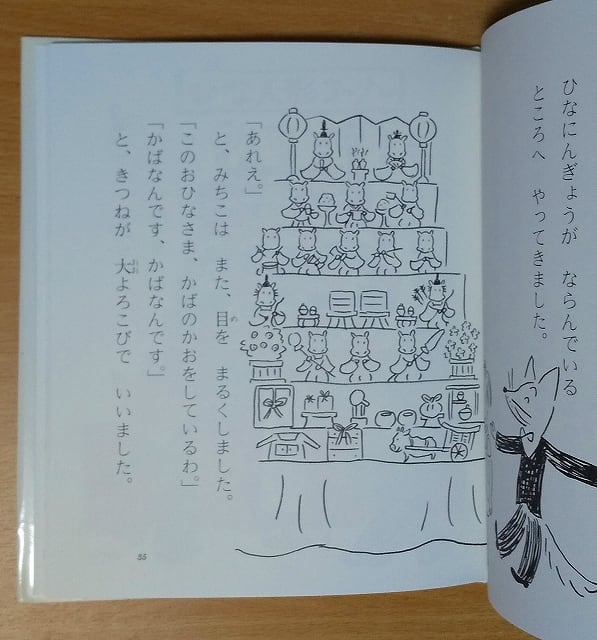 ひなにんぎょうが ならんでいる
ところへ やってきました。
「あれえ。」
と、みちこは また、目を まるくしました。
「このおひなさま、かばのかおをしているわ。」
「かばなんです、かばなんです。」
と、きつねが 大よろこびで いいました。
55